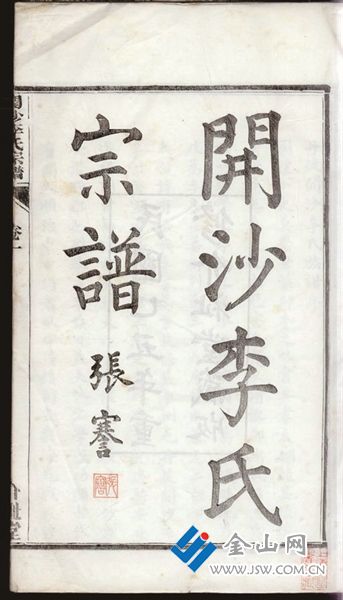 開沙李氏
宗譜
張謇
開沙李氏宗譜
卷一
金山网
www.JSW.com.cn